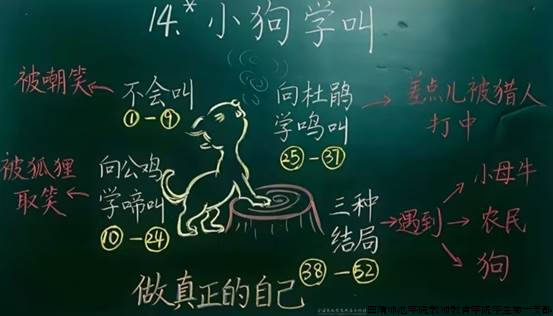 14.*小狗学叫
被嘲笑
不会叫
①-⑨
向杜鹃
学鸣叫
㉕-㊲
差点儿被猎人
打中
被狐狸
取笑
向公鸡
学啼叫
⑩-㉔
三种
结局
㊳-52
遇到
小母牛
农民
狗
做真正的自己